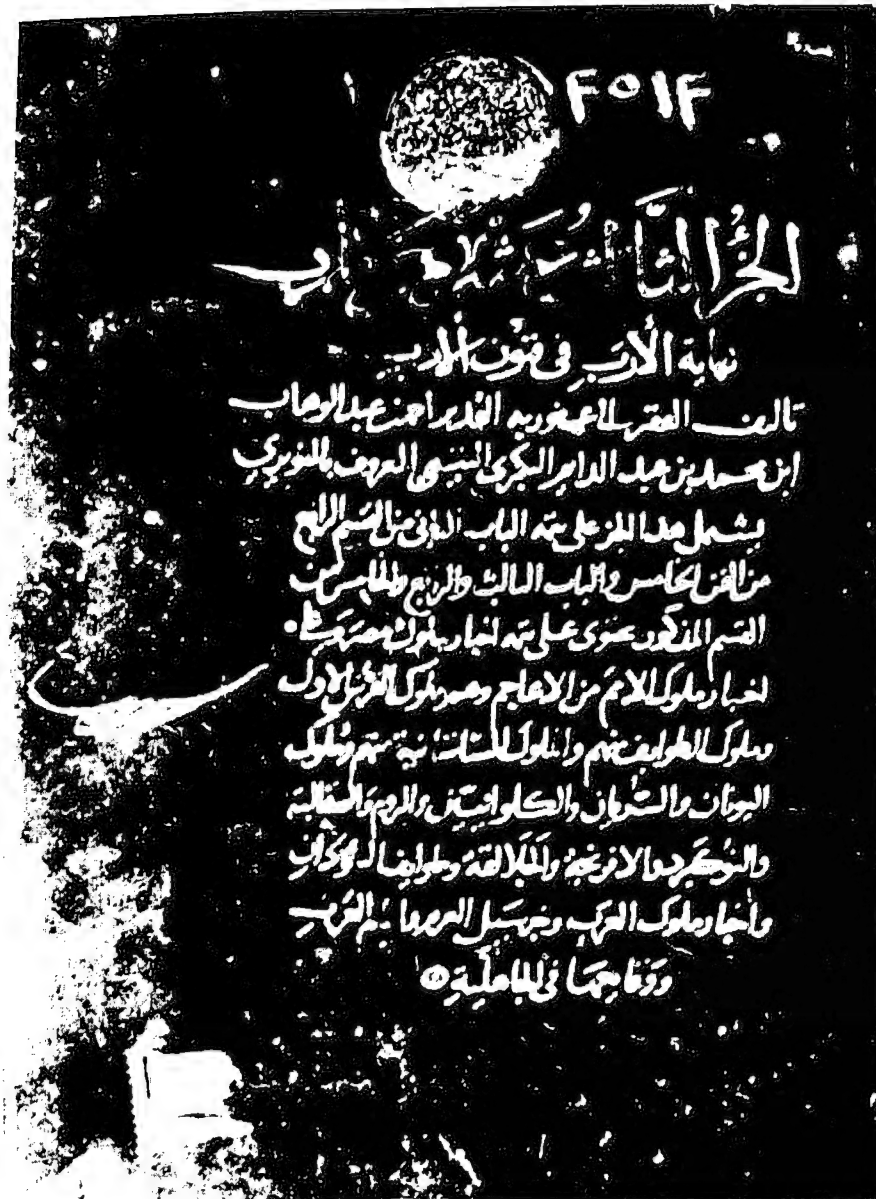 ٢٥١٢
الجزؤ الثا عشر
نهاية الأرب في فنون الأدب
تاليف الفقير الى عفو ربه القدير أحمد عبد الوهاب
ابن محمد بن عبد الدايم البكري التيمي المعروف بالنويري
يشتمل هذا الجز على تتمة الباب الثاني من القسم الرابع
من الفن الخامس والباب الثالث والرابع والخامس من
القسم المذكور يحتوى على تتمة اخبار ملوك مصر
اخبار ملوك الامم من الاعاجم وهم ملوك الفرس الاول
وملوك الطوايف منهم والملوك الساسانية منهم وملوك
اليونان والسريان والكلوانيين والروم والصقالبة
والنوكبرد والافرنجة والجلالقة وطوايف السودان
وأخبار ملوك العرب وخبر سيل العرم وايام العرب
ووقايعها في الجاهلية